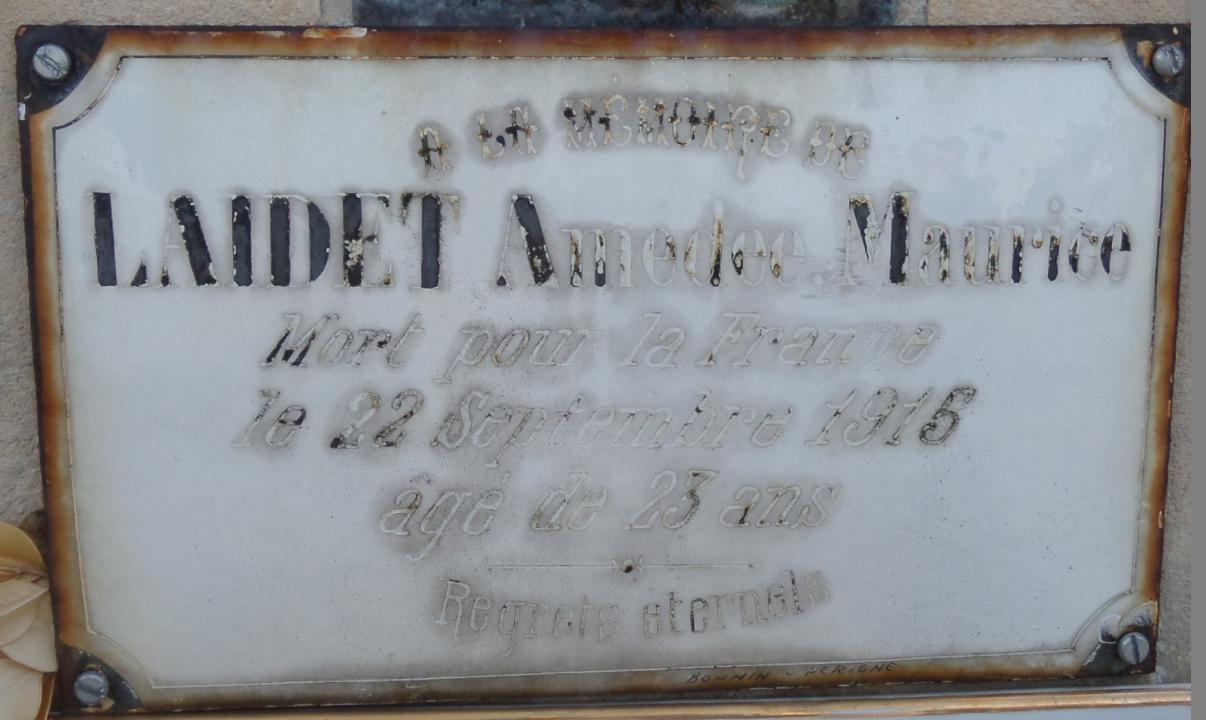 A LA MEMOIRE DE
LAIDET Amedee Maurice
Mort pour la France
le 22 Septembre 1915
âgé de 23 ans
Regrets eternels
BONNIN - PERIGNE